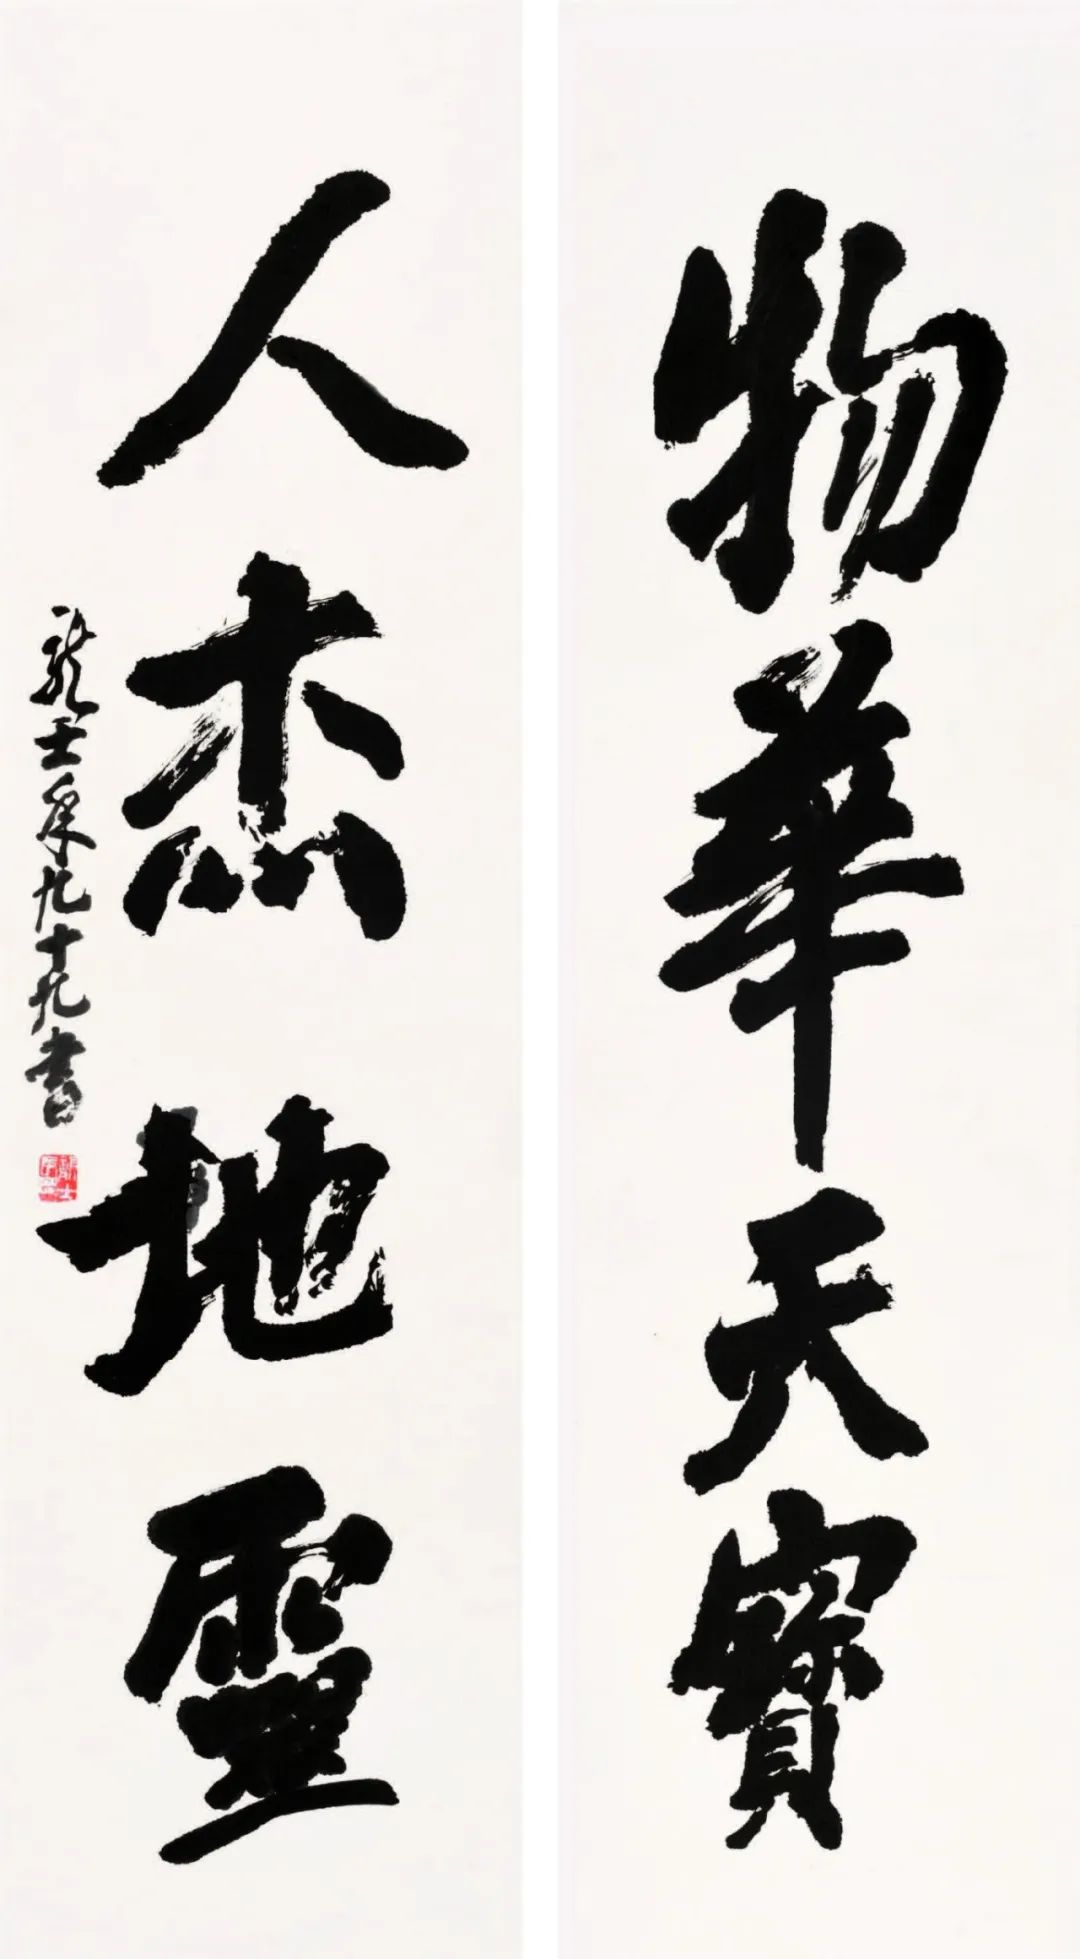 物華天寶
人杰地靈
九十九書